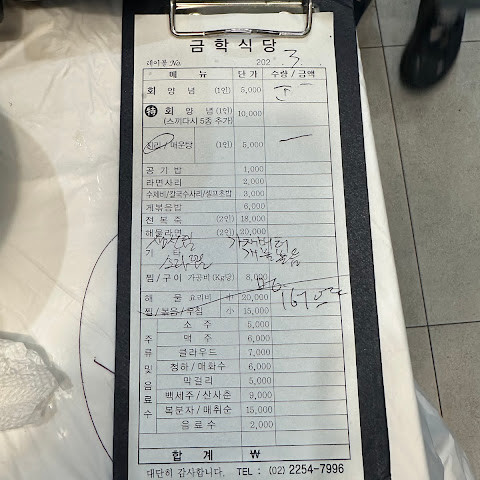 금학식당
테이블 No. 202 . 3.
메 뉴 단 가 수량 / 금액
회 양 념 (1인) 5,000
특 회 양 념 (1인) 10,000
(스끼다시 5종 추가)
지리 / 매운탕 (1인) 5,000
공 기 밥 1,000
라면사리 2,000
수제비/칼국수사리/셀프초밥 3,000
게볶음밥 6,000
전 복 죽 (2인) 18,000
해물라면 (2인) 20,000
기 타
찜 / 구이 가공비 (Kg당) 8,000
해 물 요리비 大 20,000
찜 / 볶음 / 무침 小 15,000
주 류 및 음 료 수
소 주 5,000
맥 주 6,000
클라우드 7,000
청하 / 매화수 6,000
막걸리 5,000
백세주 / 산사춘 9,000
복분자 / 매취순 15,000
음 료 수 2,000
합 계 ₩
대단히 감사합니다. TEL : (02) 2254-7996